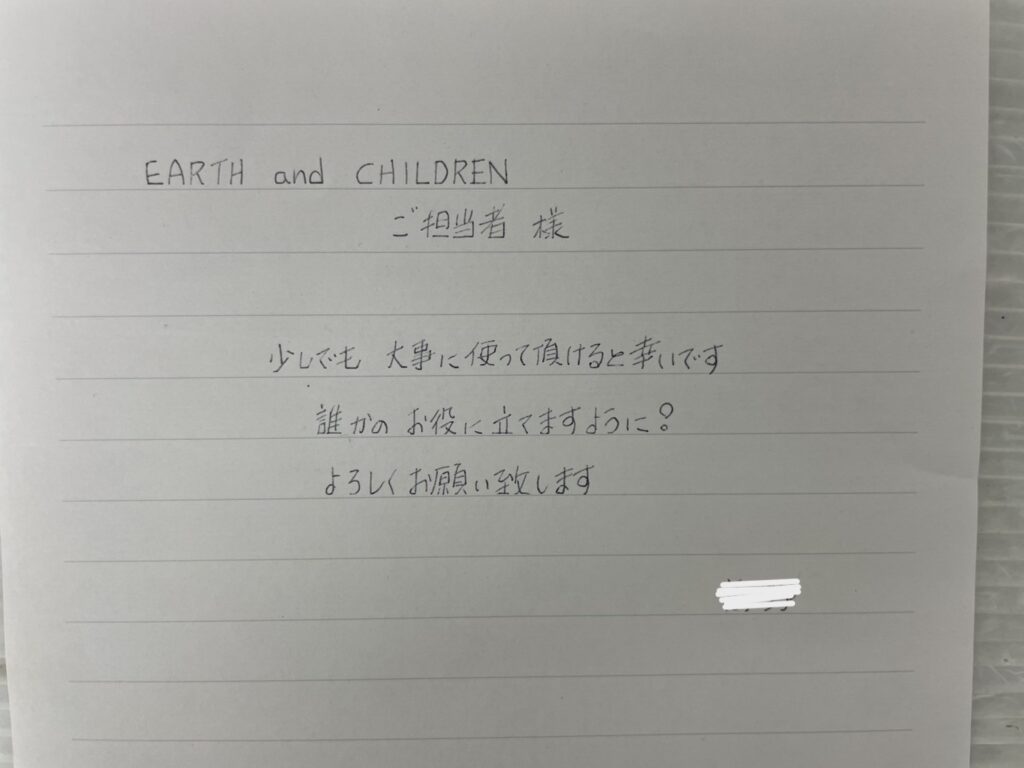 EARTH and CHILDREN
ご担当者 様
少しでも 大事に使って頂けると幸いです
誰かの お役に立てますように?
よろしくお願い致します